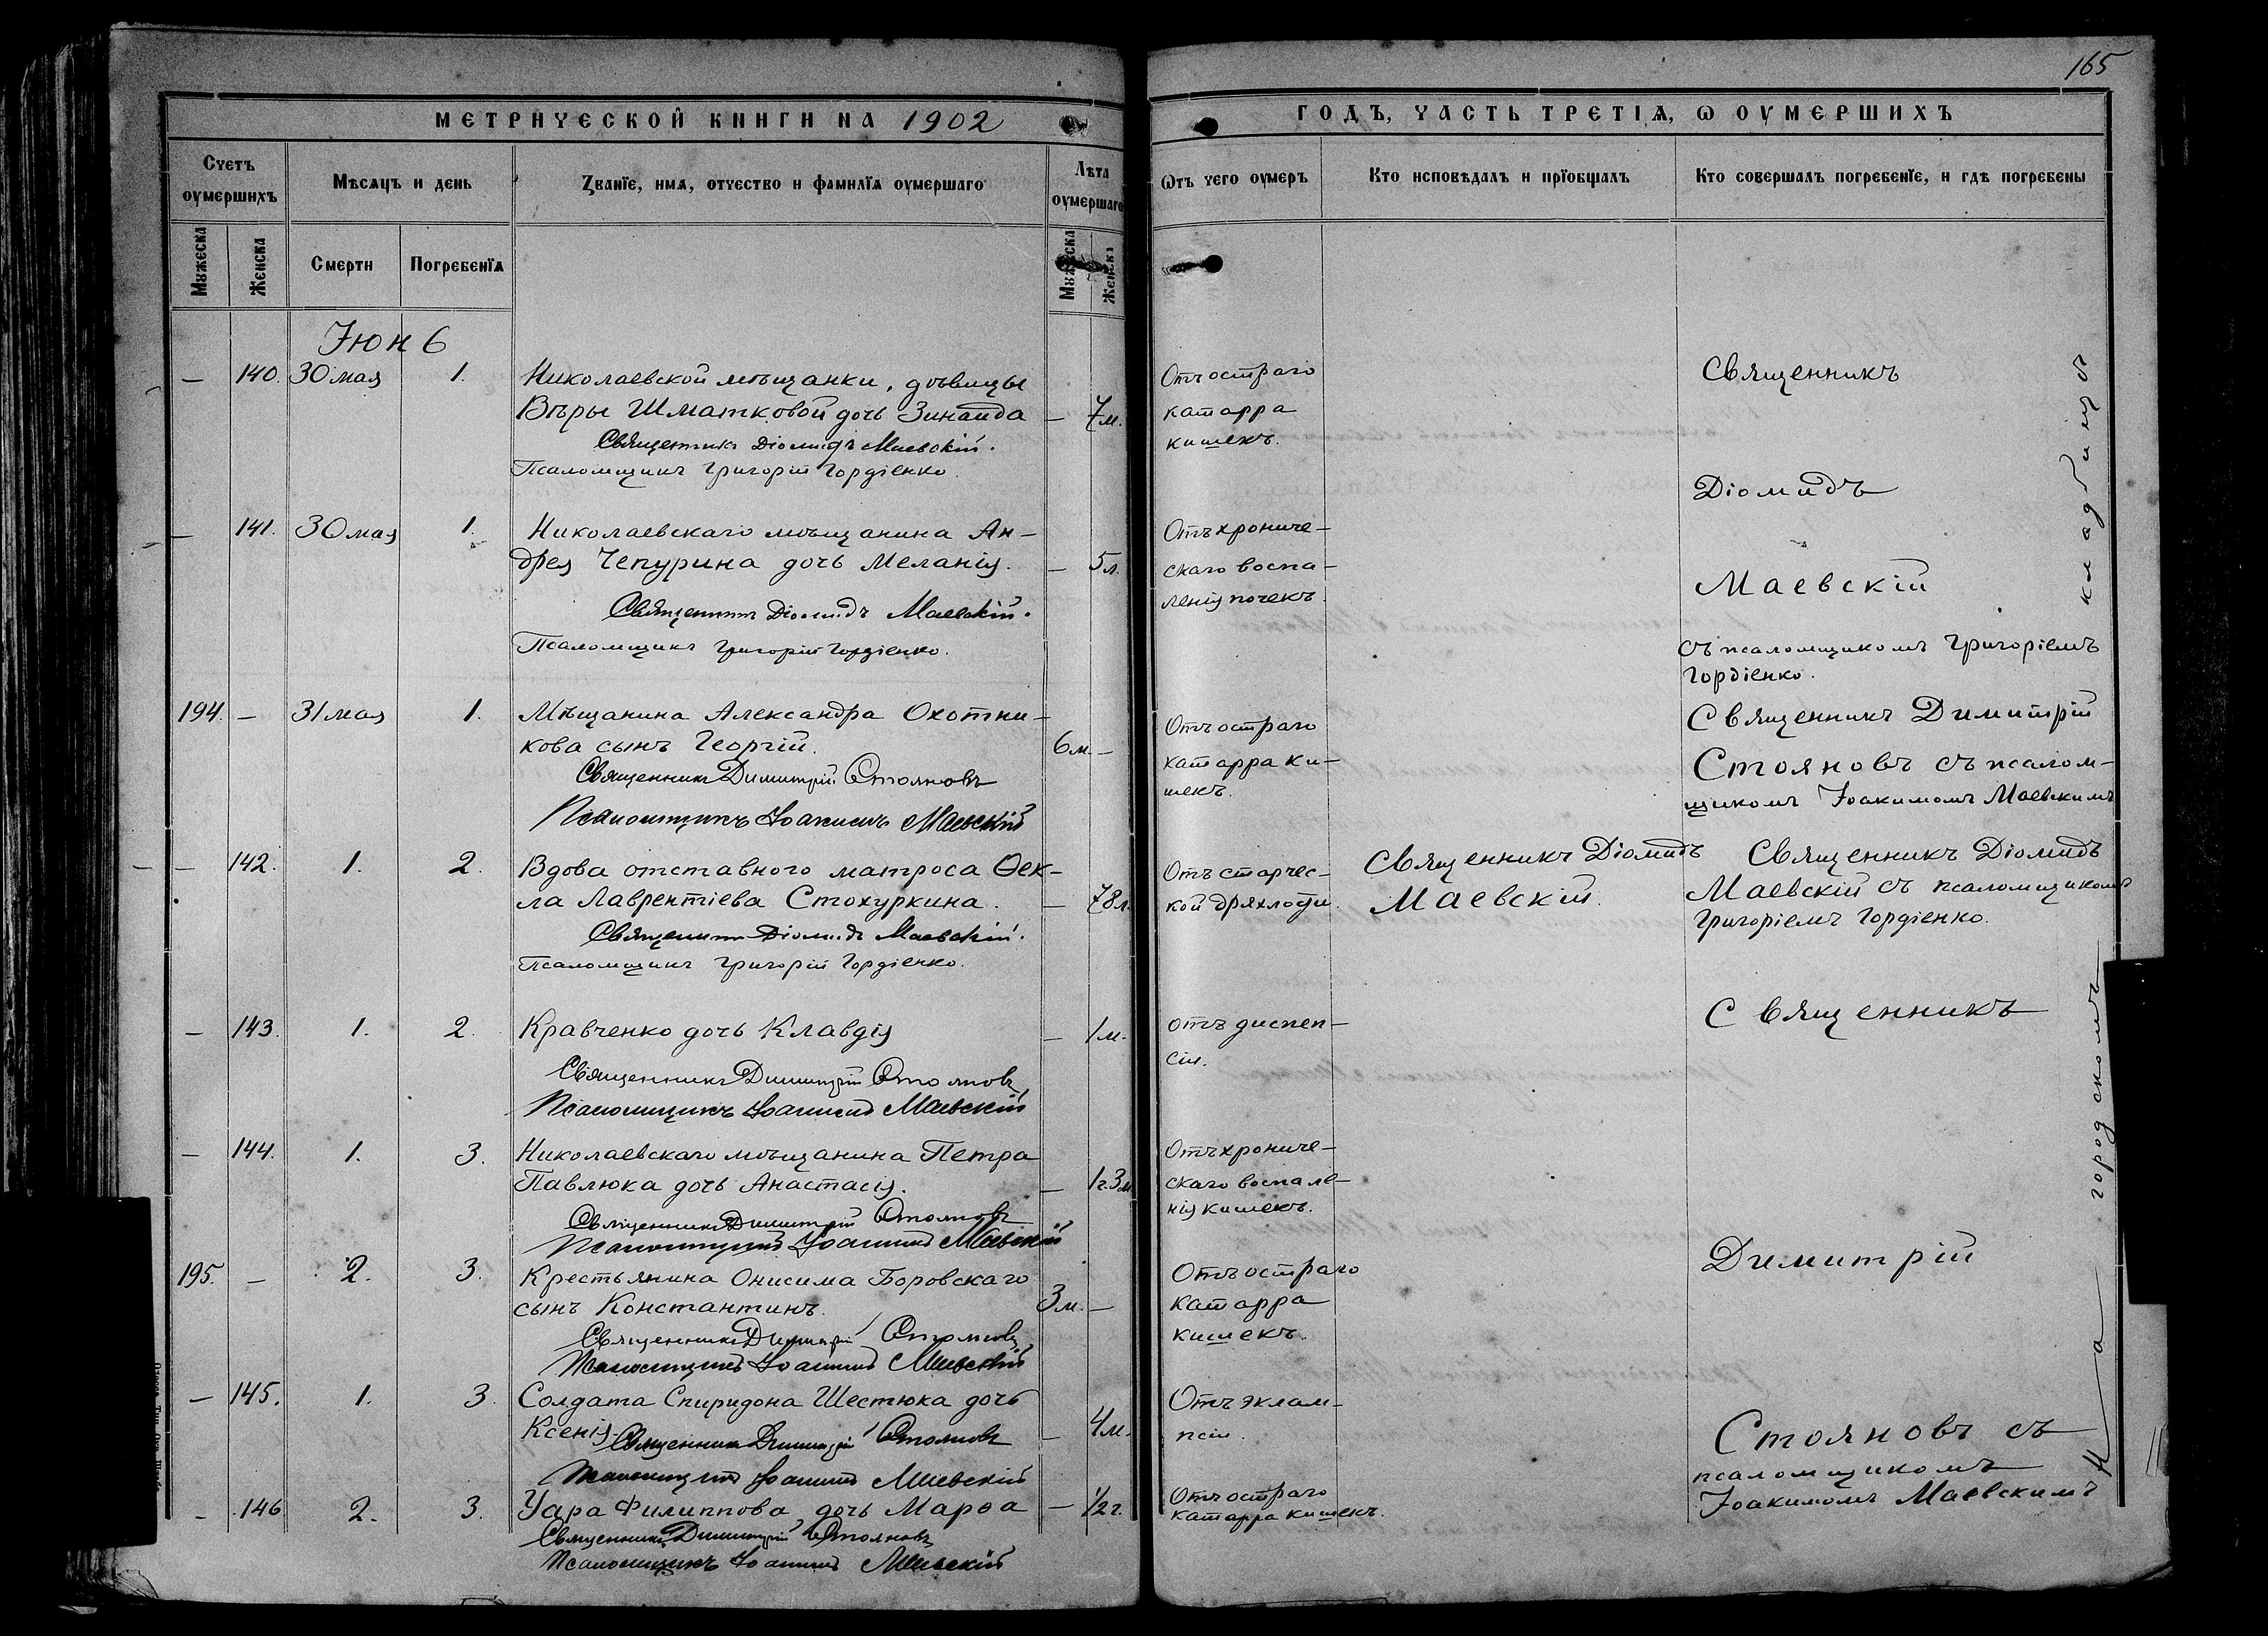 165
МЕТРИЧЕСКОЙ КНИГИ НА 1902
ГОДЪ, ЧАСТЬ ТРЕТІѦ, Ѡ ОУМЕРШИХЪ
Счетъ оумершихъ
Мѣсѧцъ и день
Званїе, имѧ, отчество и фамилїѧ оумершаго
Лѣта оумершаго
Ѿтъ чего оумеръ
Кто исповѣдалъ и прїобщалъ
Кто совершалъ погребенїе, и гдѣ погребены
Мужеска
Женска
Смерти
Погребенїѧ
Мужеска
Женска
Іюнь
— 140. 30 мая 1. Николаевской мѣщанки, дѣвицы
Вѣры Шматковой дочь Зинаида — 7 м.
Священникъ Діомидъ Маевскій.
Псаломщикъ Григорій Гордіенко.
Отъ остраго
катарра
кишекъ.
Священникъ
Діомидъ
— 141. 30 мая 1. Николаевскаго мѣщанина Ан-
дрея Чепурина дочь Меланія. — 5 л.
Священникъ Діомидъ Маевскій.
Псаломщикъ Григорій Гордіенко.
Отъ хрониче-
скаго воспа-
ленія почекъ.
Маевскій
съ псаломщикомъ Григоріемъ
Гордіенко.
194. — 31 мая 1. Мѣщанина Александра Охотни-
кова сынъ Георгій. 6 м. —
Священникъ Димитрій Стояновъ
Псаломщикъ Іоакимъ Маевскій
Отъ остраго
катарра ки-
шекъ.
Священникъ Димитрій
Стояновъ съ псалом-
щикомъ Іоакимомъ Маевскимъ
— 142. 1. 2. Вдова отставного матроса Ѳек-
ла Лаврентіева Стохуркина. — 78 л.
Священникъ Діомидъ Маевскій.
Псаломщикъ Григорій Гордіенко.
Отъ старчес-
кой дряхлости.
Священникъ Діомидъ
Маевскій.
Священникъ Діомидъ
Маевскій съ псаломщикомъ
Григоріемъ Гордіенко.
— 143. 1. 2. Кравченко дочь Клавдія — 1 м.
Священникъ Димитрій Стояновъ
Псаломщикъ Іоакимъ Маевскій
отъ диспеп-
сіи.
Священникъ
— 144. 1. 3. Николаевскаго мѣщанина Петра
Павлюка дочь Анастасія. — 1 г. 3 м.
Священникъ Димитрій Стояновъ
Псаломщикъ Іоакимъ Маевскій
Отъ хрониче-
скаго воспале-
нія кишекъ.
195. — 2. 3. Крестьянина Онисима Боровскаго
сынъ Константинъ. 3 м. —
Священникъ Димитрій Стояновъ
Псаломщикъ Іоакимъ Маевскій
Отъ остраго
катарра
кишекъ.
Димитрій
— 145. 1. 3. Солдата Спиридона Шестюка дочь
Ксенія. — 4 м.
Священникъ Димитрій Стояновъ
Псаломщикъ Іоакимъ Маевскій
Отъ эклам-
псіи.
Стояновъ съ
псаломщикомъ
Іоакимомъ Маевскимъ
— 146 2. 3. Уара Филиппова дочь Марѳа — 1/2 г.
Священникъ Димитрій Стояновъ
Псаломщикъ Іоакимъ Маевскій
Отъ остраго
катарра кишекъ.
На городскомъ кладбищѣ